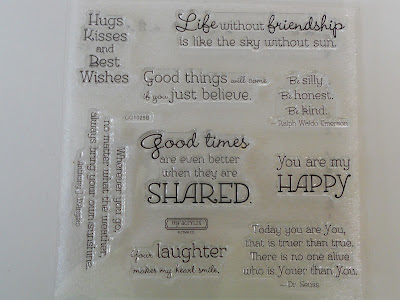 Hugs
Kisses
and
Best
Wishes
Life without friendship
is like the sky without sun.
Good things will come
if you just believe.
Be silly.
Be honest.
Be kind.
– Ralph Waldo Emerson
Wherever you go,
no matter what the weather,
always bring your own sunshine.
Anthony J. D'Angelo
Good times
are even better
when they are
SHARED.
You are my
HAPPY
Your laughter
makes my heart smile.
Today you are You,
that is truer than true.
There is no one alive
who is Youer than You.
– Dr. Seuss